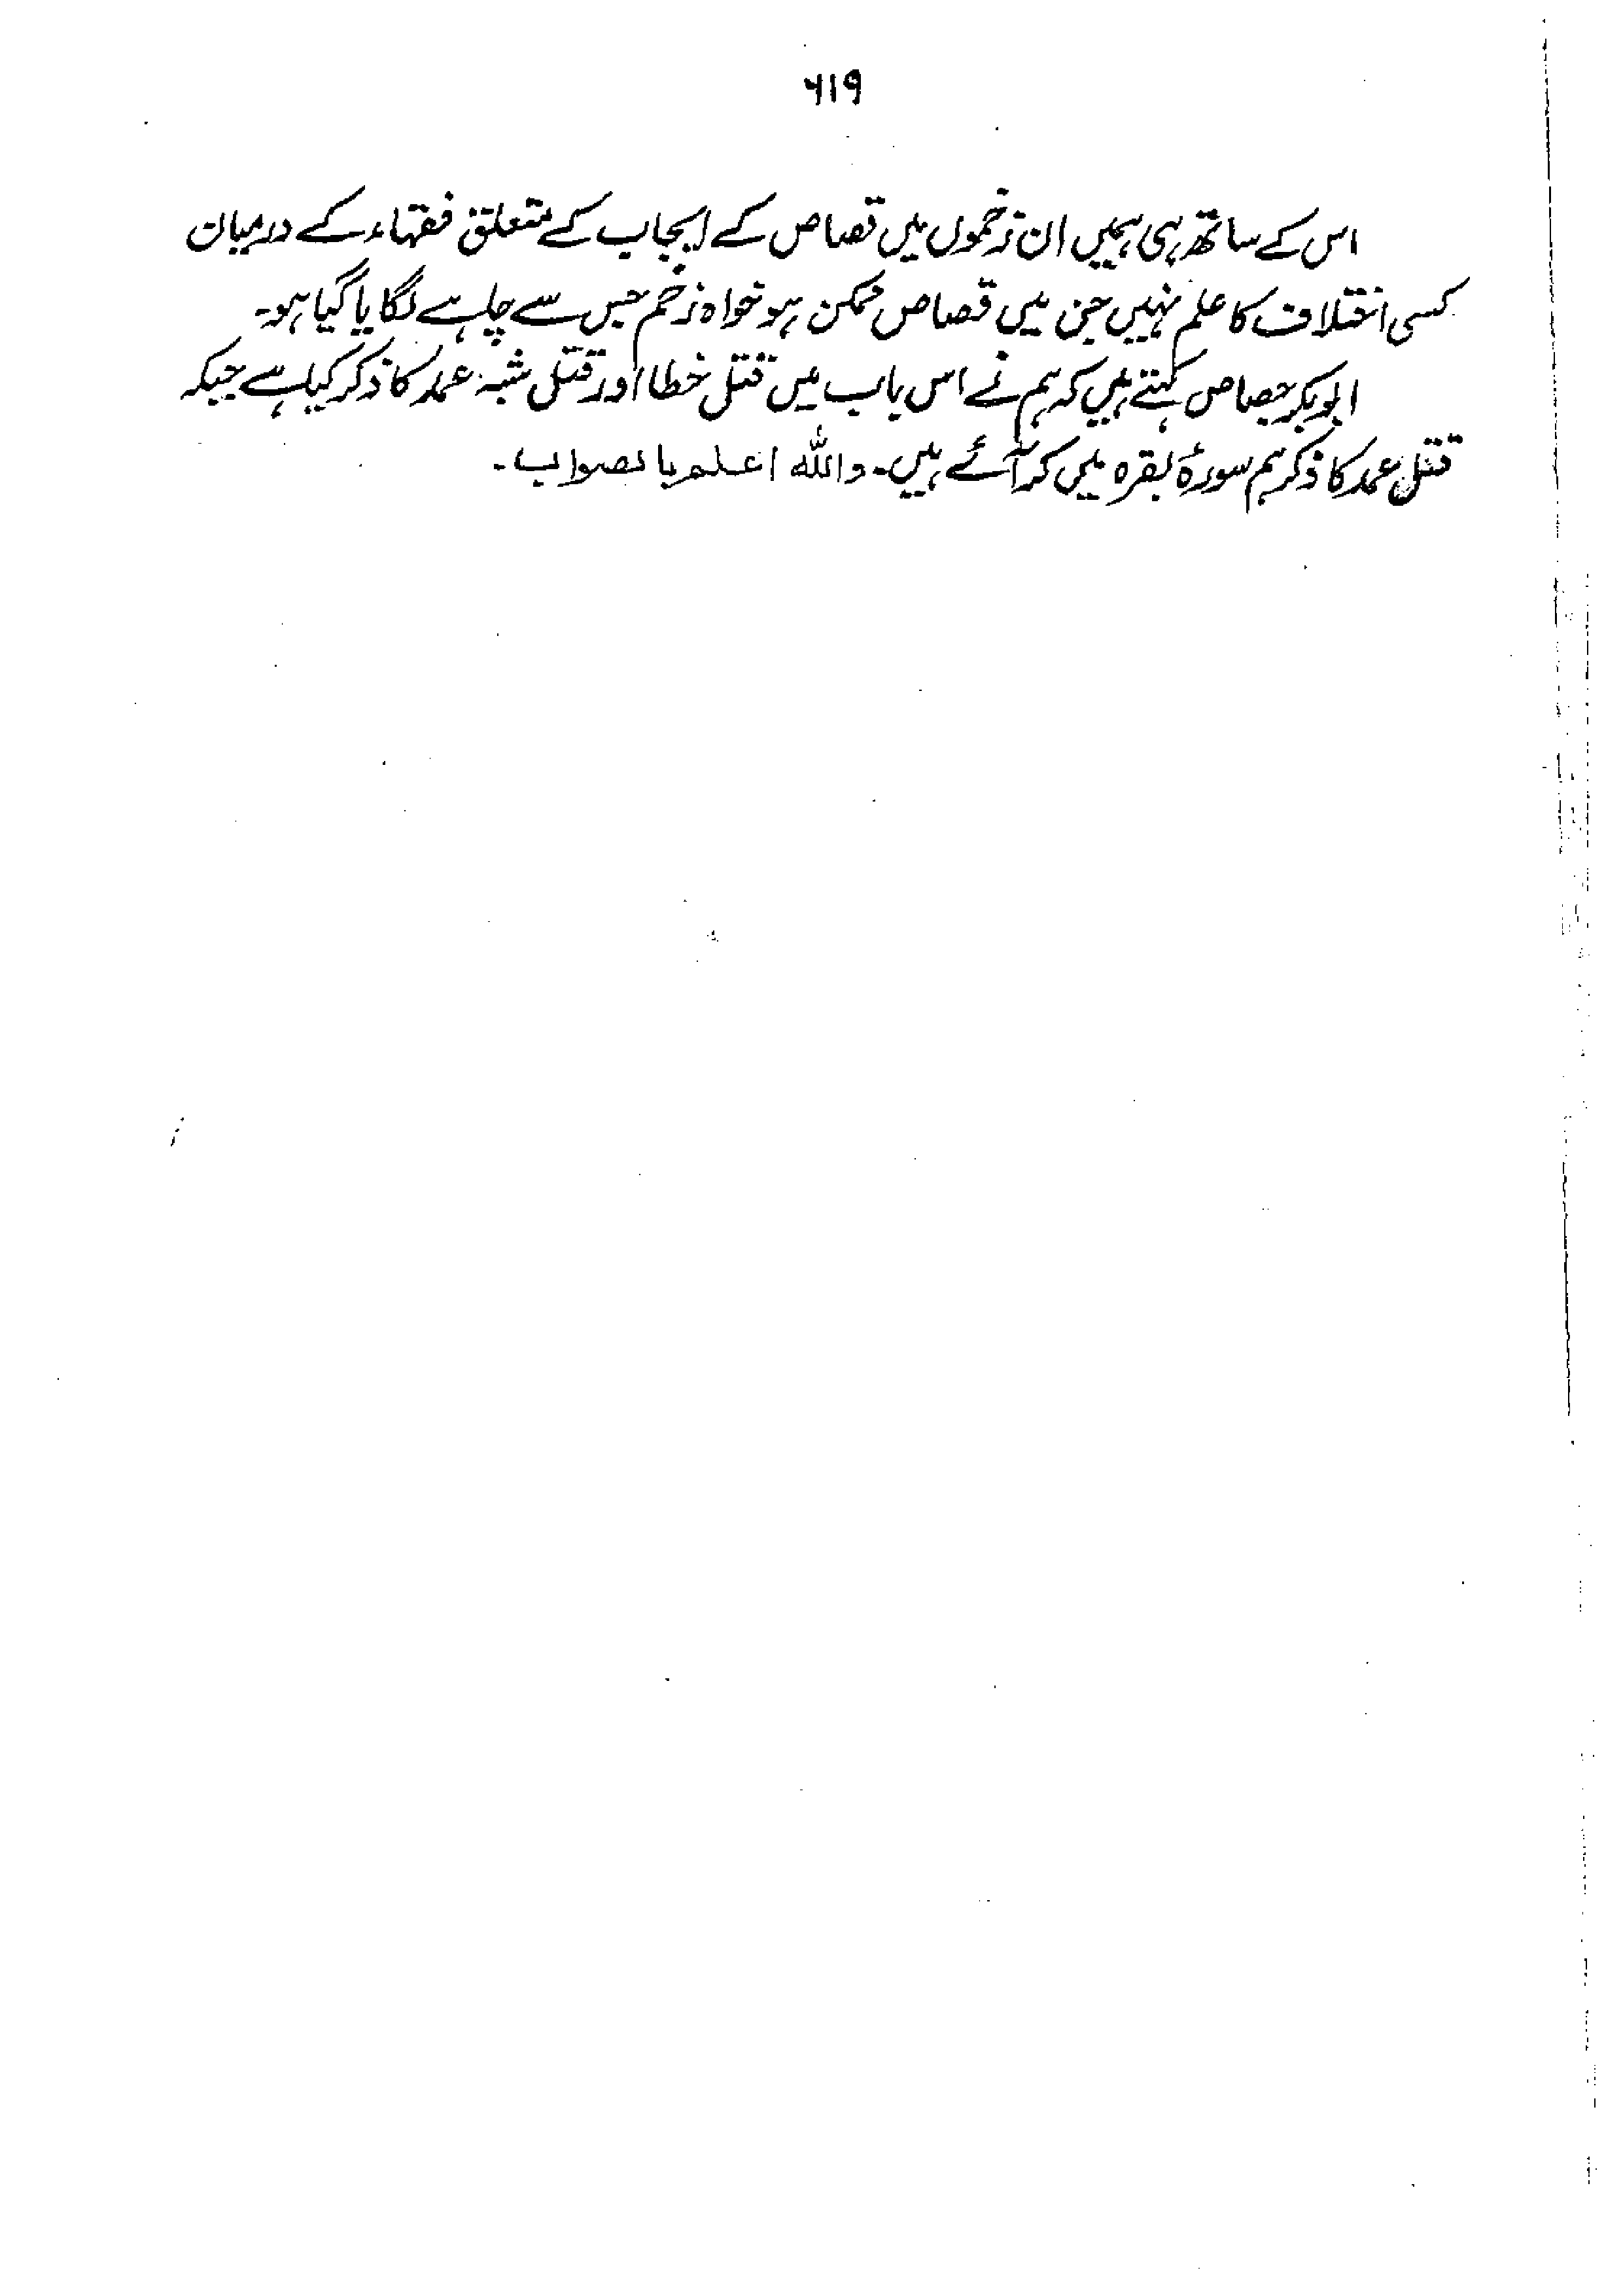 ۶۱۹
اس کے ساتھ ہی ہمیں ان زخموں میں قصاص کے ایجاب کے متعلق فقہاء کے درمیان
کسی اختلاف کا علم نہیں جن میں قصاص ممکن ہو خواہ زخم جس سے چاہے لگایا گیا ہو۔
ابوبکر جصاص کہتے ہیں کہ ہم نے اس باب میں قتل خطا اور قتل شبہ عمد کا ذکر کیا ہے جبکہ
قتل عمد کا ذکر ہم سورۂ بقرہ میں کر آئے ہیں۔ واللہ اعلم بالصواب۔